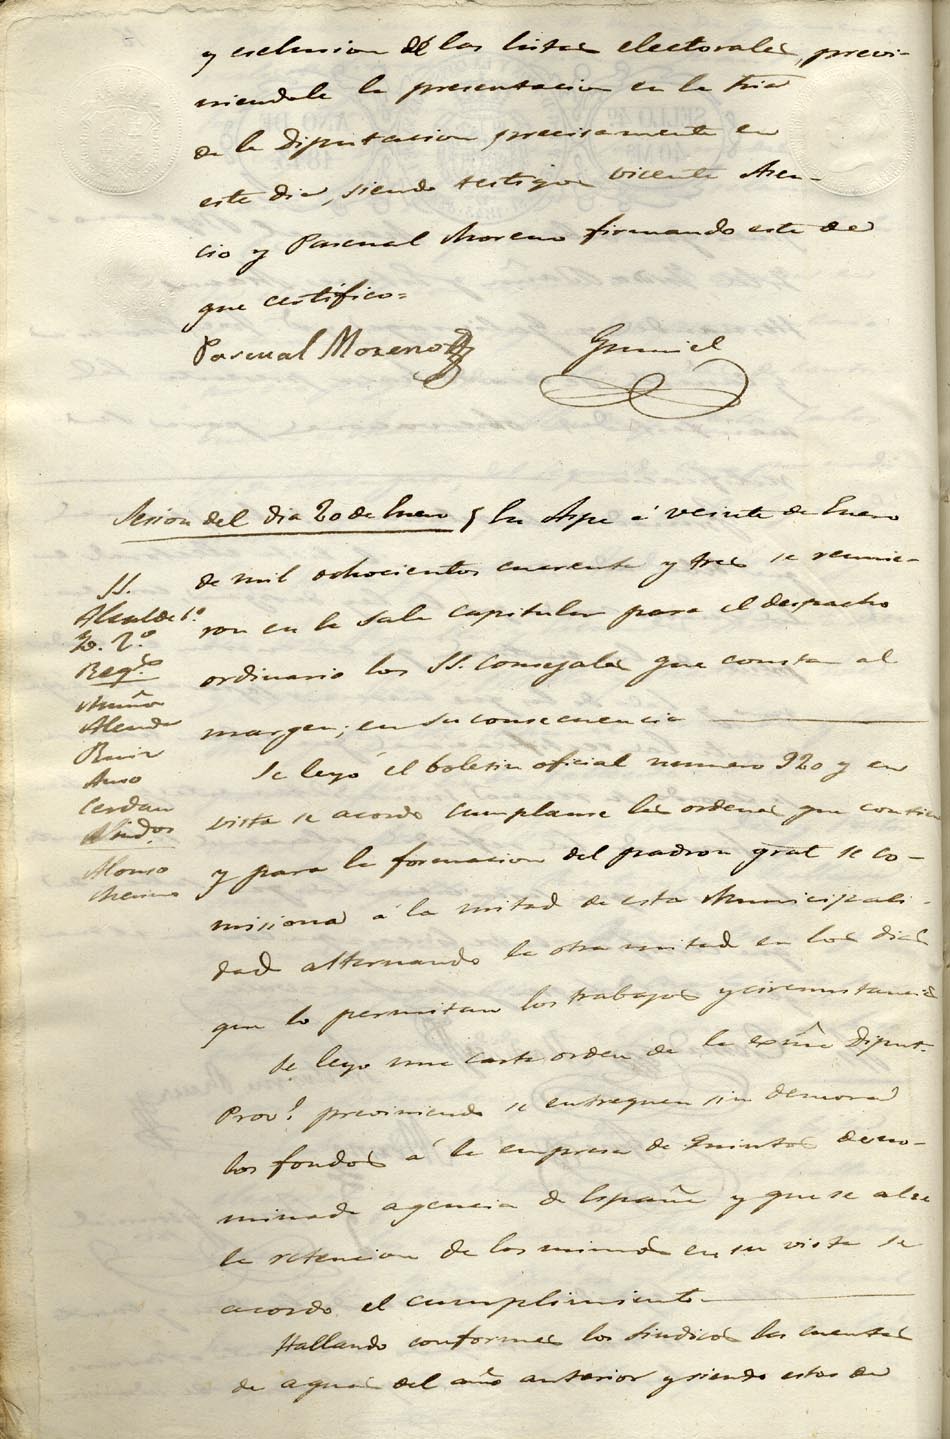 y esclusion de las listas electorales, previ-
niendole la presentacion en la Sria
de la Diputacion precisamente en
este dia, siendo testigos Vicente Asen-
cio y Pascual Moreno firmando este de
que certifico=
Pascual Moreno
Sesion del dia 20 de Enero § En Aspe á veinte de Enero
de mil ochocientos cuarenta y tres se reunie-
ron en la Sala Capitular para el despacho
ordinario los SS. Consejales que constan al
margen; en su consecuencia
SS.
Alcalde 1º
Yd. 2º
Regs
Alenda
Ruiz
Cerdan
Sindos
Alonso
Se leyó el boletin oficial numero 920 y en
vista se acordo cumplanse las ordenes que contiene
y para la formacion del padron gral se co-
misiona á la mitad de esta Municipali-
dad alternando la otra mitad en los dias
que lo permitan los trabajos y circunstancias
Se leyo una carta orden de la exma Diput.
Provl previniendo se entreguen sin demora
los fondos á la empresa de Quintos deno-
minada agencia de España y que se alce
la retencion de los mismos en su vista se
acordo el cumplimiento
Hallando conformes los Sindicos las cuentas
de aguas del año anterior y siendo estas de